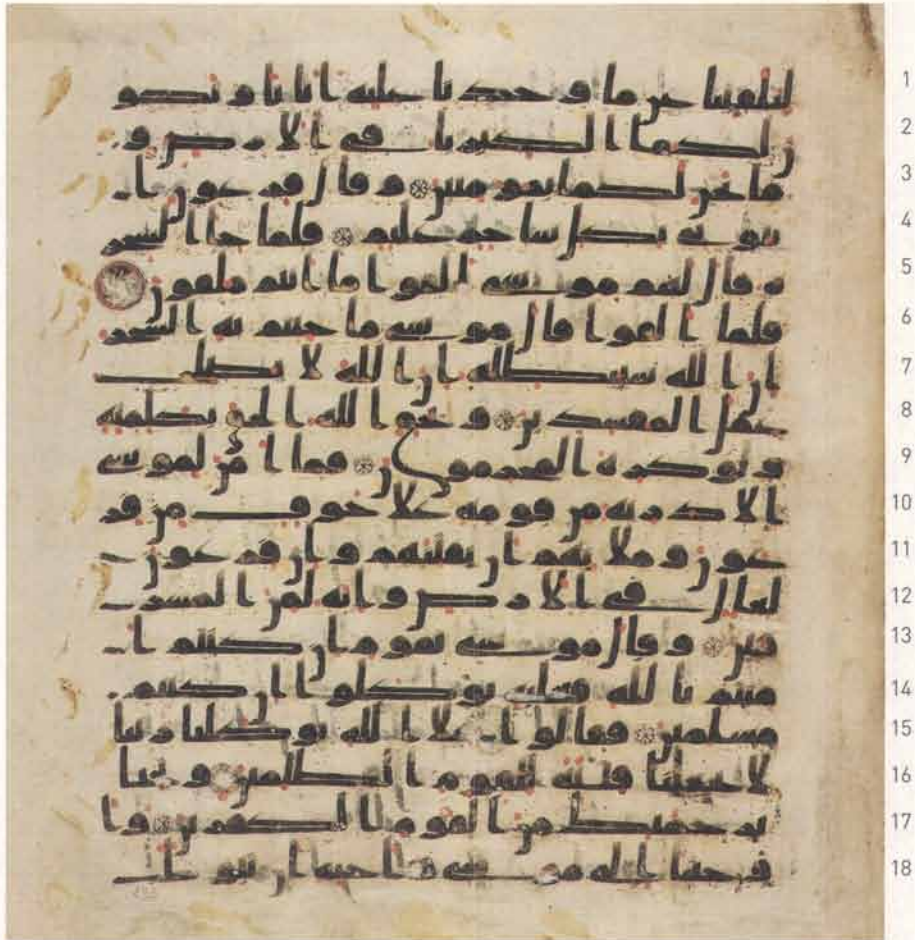 لتلفتنا عن ما وجدنا عليه ابانا وتكو
ن لكما الكبريا في الارض و
ما نحن لكما بمومنين وقال فرعون ا
يتوني بكل ساحر عليم فلما جا السحر
ة قال لهم موسى القوا ما انتم ملقون
فلما القوا قال موسى ما جيتم به السحر
ان الله سيبطله ان الله لا يصلح
عمل المفسدين ويحق الله الحق بكلمته
ولو كره المجرمون فما امن لموسى
الا ذرية من قومه على خوف من فر
عون وملايهم ان يفتنهم وان فرعون
لعال في الارض وانه لمن المسر
فين وقال موسى يقوم ان كنتم ا
منتم بالله فعليه توكلوا ان كنتم
مسلمين فقالوا على الله توكلنا ربنا
لا تجعلنا فتنة للقوم الظلمين ونجنا
برحمتك من القوم الكفرين وا
وحينا الى موسى واخيه ان تبوا
1
2
3
4
5
6
7
8
9
10
11
12
13
14
15
16
17
18